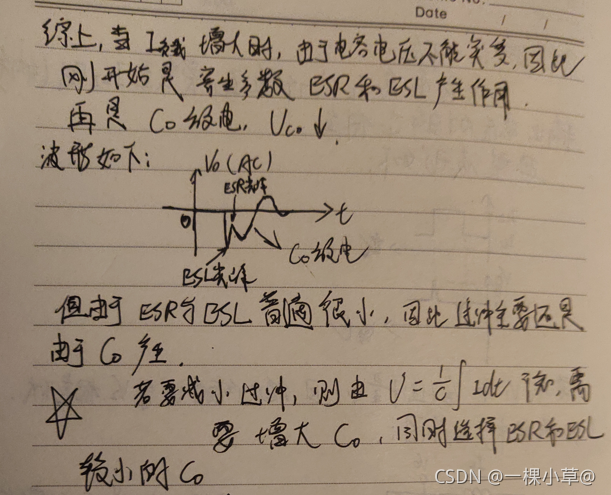 Date / /
综上,当I负载增大时,由于电容电压不能突变,因此
刚开始是寄生参数ESR和ESL产生作用.
再是Co放电,Uco↓.
波形如下:
Vo(AC)
ESR
0
t
Co放电
ESL
但由于ESR与ESL普遍很小,因此过冲主要还是
由于Co产生.
若要减小过冲,则由U=1/C∫Idt 知,需
要增大Co,同时选择ESR和ESL
较小的Co
CSDN @一棵小草@